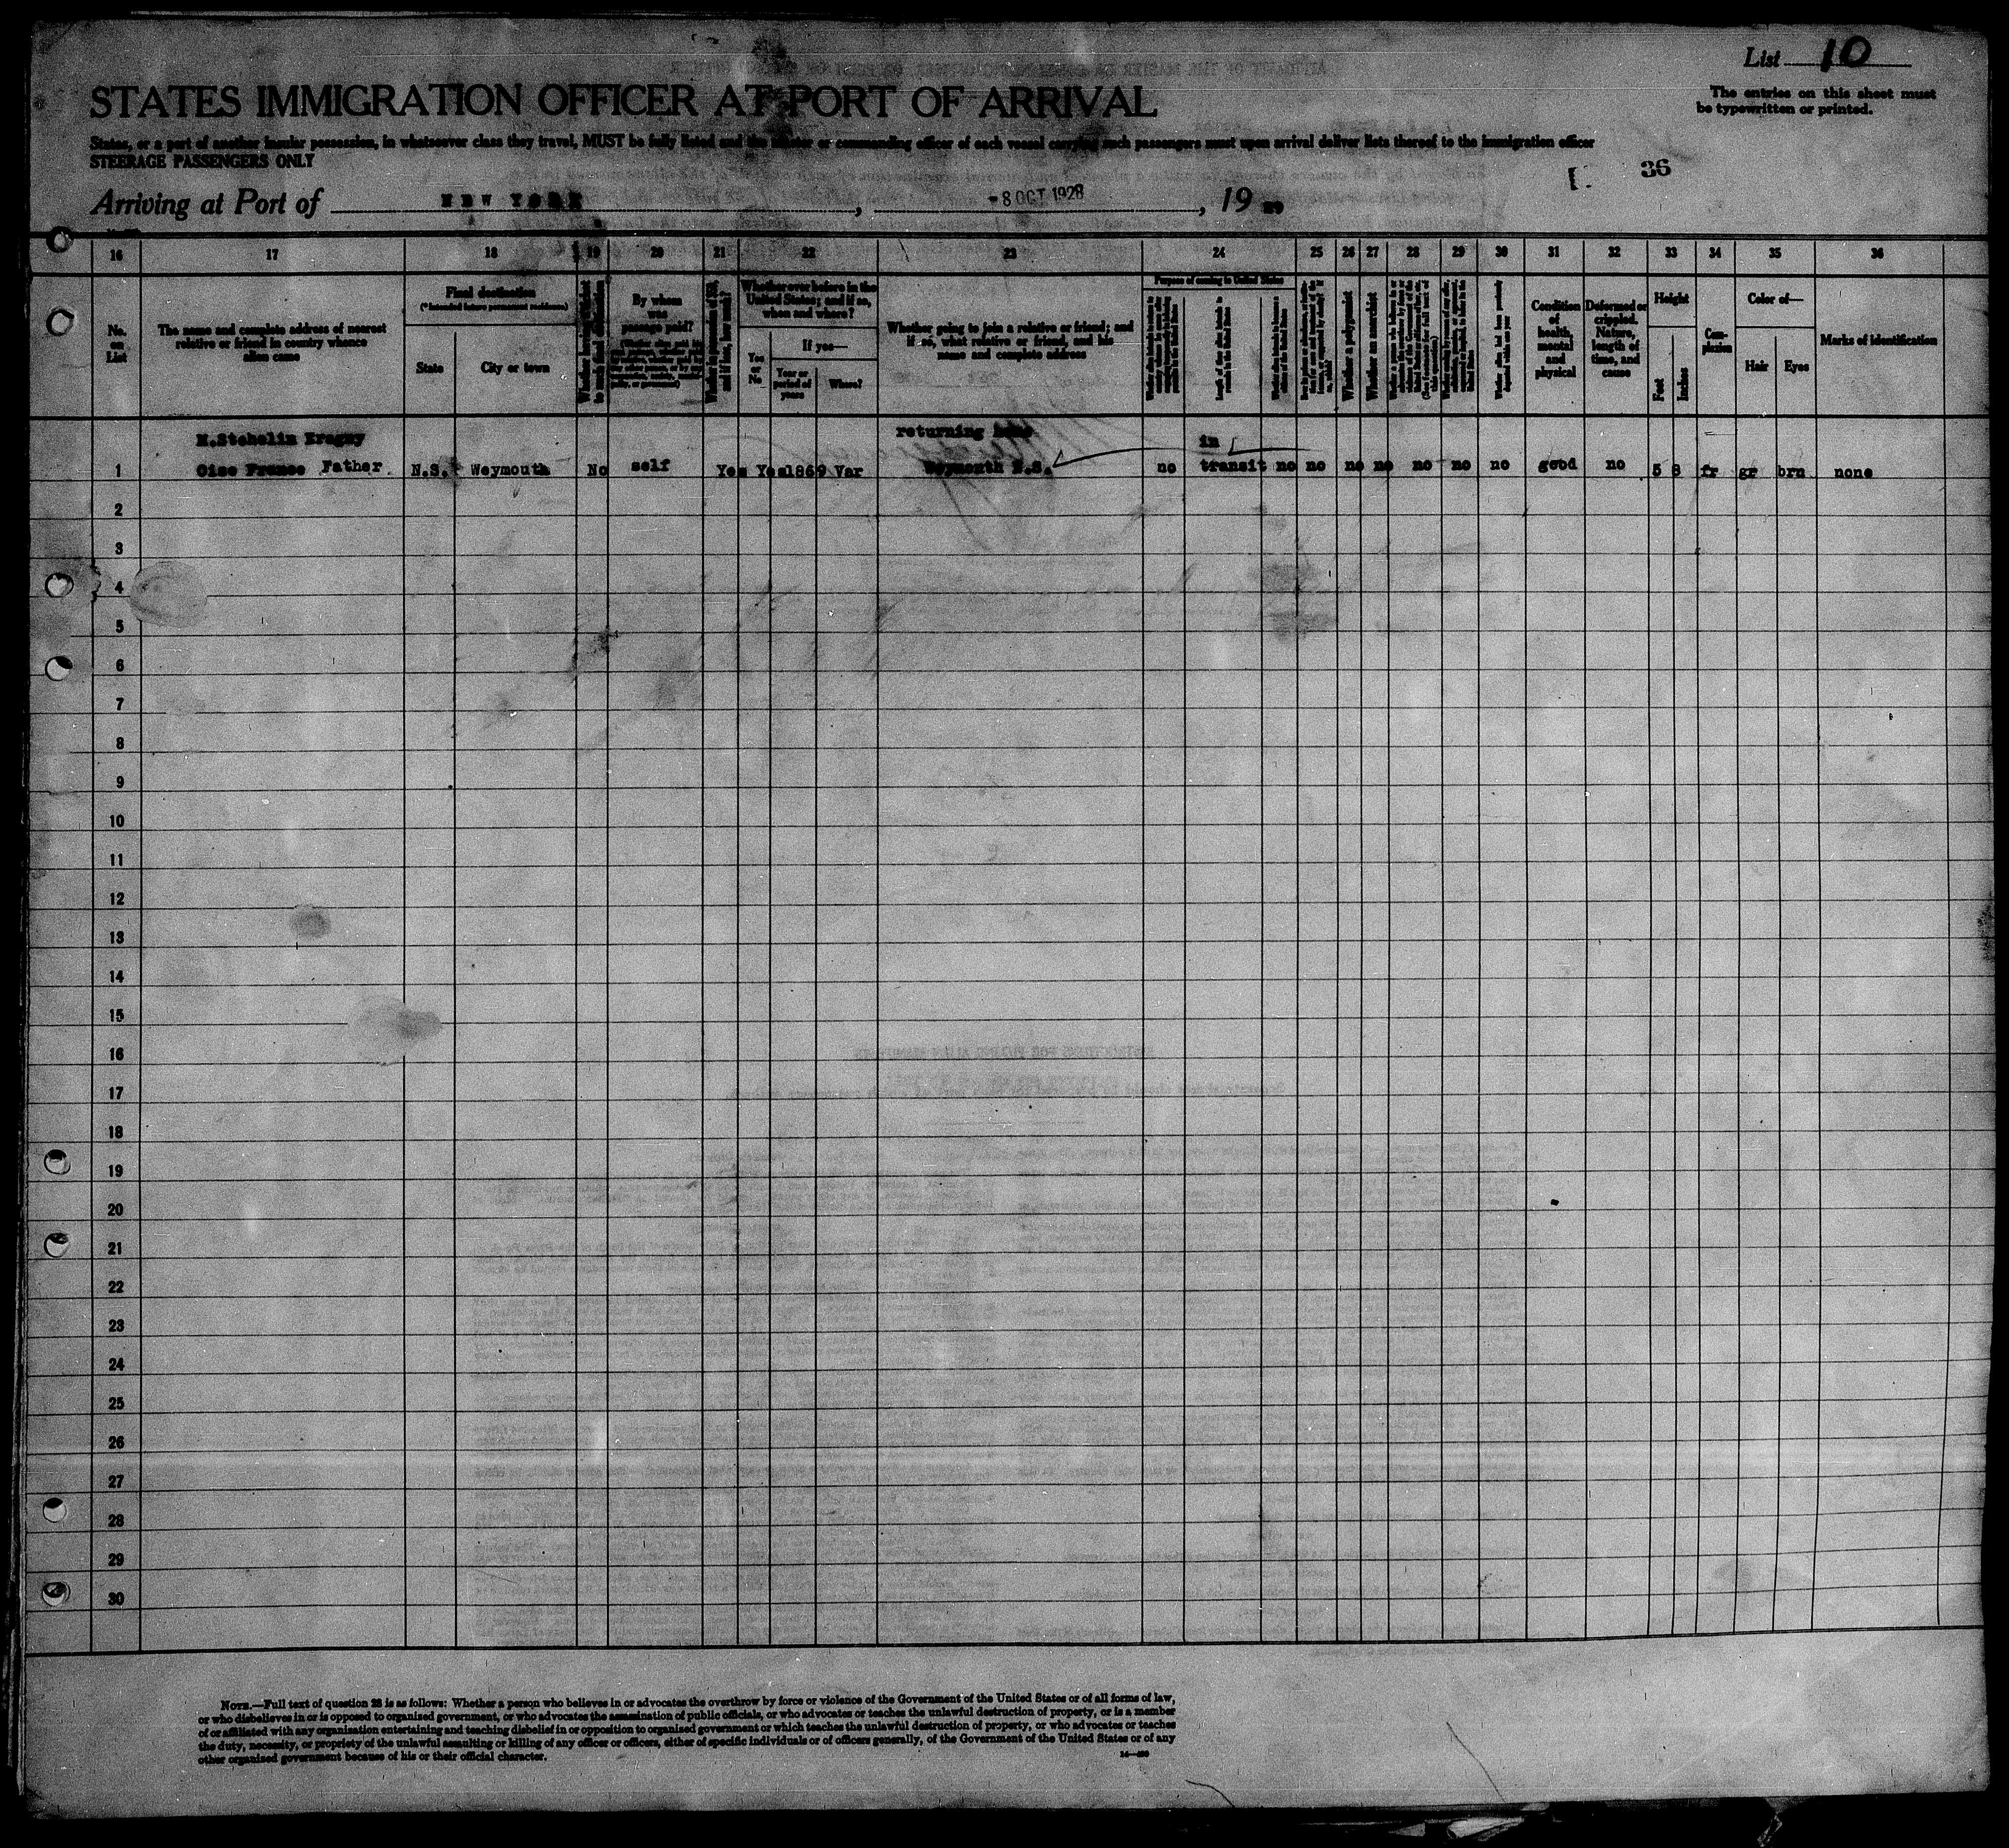 List 10
The entries on this sheet must
be typewritten or printed.
STATES IMMIGRATION OFFICER AT PORT OF ARRIVAL
States, or a part of another insular possession, in whatsoever class they travel, MUST be fully listed and the master or commanding officer of each vessel carrying such passengers must upon arrival deliver lists thereof to the immigration officer
STEERAGE PASSENGERS ONLY
36
Arriving at Port of NEW YORK, -8 OCT 1928, 19
16 17 18 19 20 21 22 23 24 25 26 27 28 29 30 31 32 33 34 35 36
No.
on
List
The name and complete address of nearest
relative or friend in country whence
alien came
Final destination
(*Intended future permanent residence)
State
City or town
By whom
was
passage paid?
Whether ever before in the
United States; and if so,
when and where?
Yes
or
No
If yes—
Year or
period of
years
Where?
Whether going to join a relative or friend; and
if so, what relative or friend, and his
name and complete address
Purpose of coming to United States
Whether a polygamist
Whether an anarchist
Condition
of
health,
mental
and
physical
Deformed or
crippled.
Nature,
length of
time, and
cause
Height
Feet
Inches
Com-
plexion
Color of—
Hair
Eyes
Marks of identification
M.Stehelin Eragny
returning
in
1 Oise France Father N.S. Weymouth No self Yes Yes 1869 Var Weymouth N.S. no transit no no no no no no no good no 5 8 fr gr brn none
2
3
4
5
6
7
8
9
10
11
12
13
14
15
16
17
18
19
20
21
22
23
24
25
26
27
28
29
30
NOTE.—Full text of question 28 is as follows: Whether a person who believes in or advocates the overthrow by force or violence of the Government of the United States or of all forms of law,
or who disbelieves in or is opposed to organized government, or who advocates the assassination of public officials, or who advocates or teaches the unlawful destruction of property, or is a member
of or affiliated with any organization entertaining and teaching disbelief in or opposition to organized government or which teaches the unlawful destruction of property, or who advocates or teaches
the duty, necessity, or propriety of the unlawful assaulting or killing of any officer or officers, either of specific individuals or of officers generally, of the Government of the United States or of any
other organized government because of his or their official character.